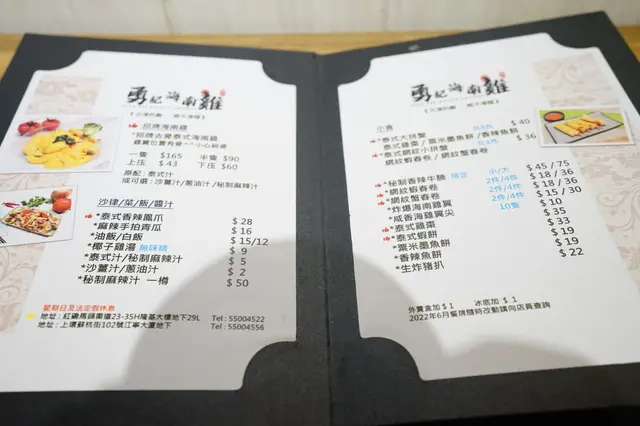 勇記海南雞
招牌海南雞
招牌去骨泰式海南雞
雞翼位置有骨^^小心碎骨
一隻 $165 半隻 $90
上压 $43 下压 $60
原配：泰式汁
或可選：沙薑汁/蔥油汁/秘制麻辣汁
沙律/菜/飯/醬汁
*泰式香辣鳳爪 $28
*麻辣手拍青瓜 $16
*油飯/白飯 $15/12
*椰子雞湯 無味精 $9
*泰式汁/秘制麻辣汁 $5
*沙薑汁/蔥油汁 $2
*秘制麻辣汁 一樽 $50
星期日及法定假休息
地址：紅磡馬頭圍道23-35H隆基大樓地下29L Tel：55004522
地址：上環蘇杭街102號江寧大廈地下 Tel：55004556
勇記海南雞
小食
*泰式大拼盤 $40
泰式雞棗/粟米墨魚餅/香辣魚餅
*泰式網紋小拼盤 $36
網紋蝦春卷/網紋蟹春卷
*秘制香辣牛腩 限定 小/大 $45/75
*網紋蝦春卷 2件/4件 $18/36
*網紋蟹春卷 2件/4件 $18/36
*炸爆海南雞翼 2件/4件 $15/30
*咸香海雞翼尖 10隻 $10
*泰式雞棗 $35
*泰式蝦餅 $33
*粟米墨魚餅 $19
*香辣魚餅 $19
*生炸豬扒 $22
外賣盒加 $1 冰底加 $1
2022年6月餐牌隨時改動請向店員查詢